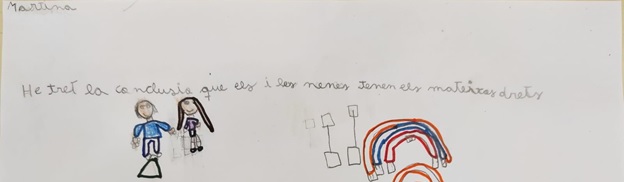 Martina
He tret la conclusia que els i les nenes tenen els mateixos drets